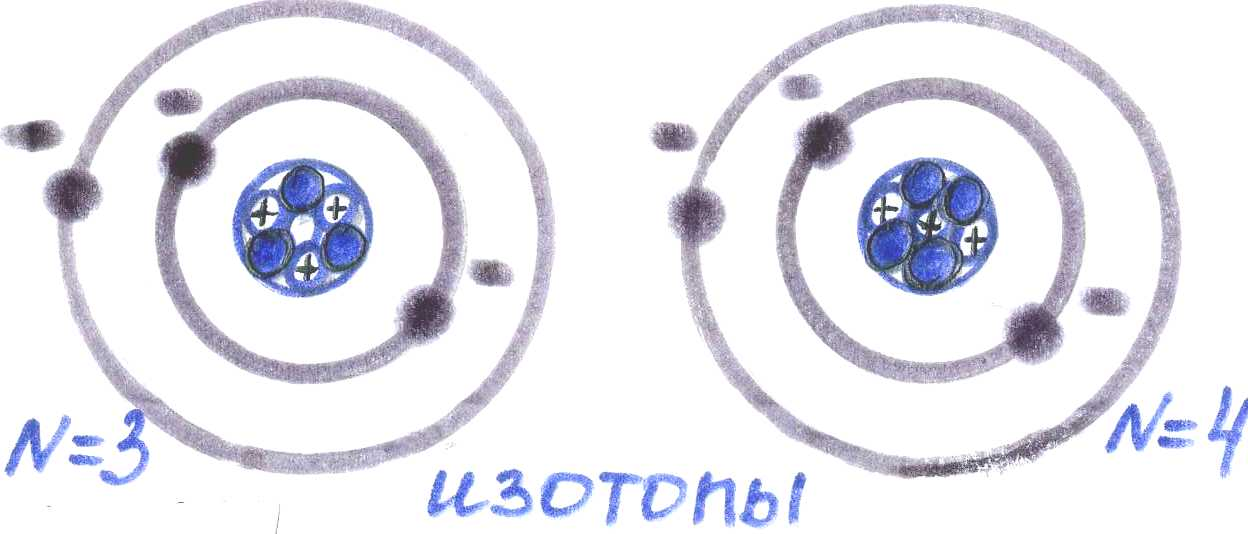 N=3
N=4
изотопы